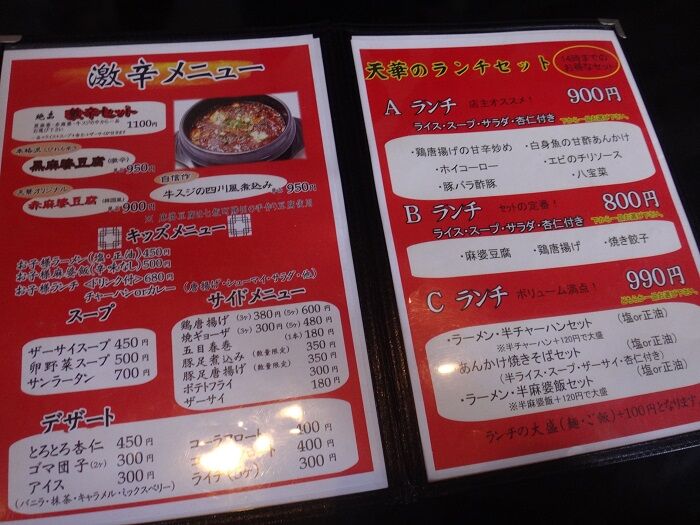 激辛メニュー
絶品 激辛セット
1100円
本格派
黒麻婆豆腐(激辛)
単品950円
天華オリジナル
赤麻婆豆腐(韓国風)
単品900円
自信作
牛スジの四川風煮込み 単品950円
※ 麻婆豆腐は七飯町
の手作り豆腐使用
キッズメニュー
お子様ラーメン(塩・正油)450円
お子様麻婆飯(辛味なし)500円
お子様ランチ <ドリンク付>680円
チャーハンorカレー
(唐揚げ・シューマイ・サラダ・他)
スープ
ザーサイスープ 450円
卵野菜スープ 500円
サンラータン 700円
サイドメニュー
鶏唐揚げ(3ヶ)380円(5ヶ)600円
焼キギョーザ(3ヶ)300円(5ヶ)480円
五目春巻 (1本)180円
豚足煮込み(数量限定)350円
豚足唐揚げ(数量限定)350円
ポテトフライ 300円
ザーサイ 180円
デザート
とろとろ杏仁 450円
ゴマ団子(2ヶ) 300円
アイス 300円
(バニラ・抹茶・キャラメル・ミックスベリー)
コーラフロート 400円
400円
ライチ(5ヶ) 300円
天華のランチセット
14時までのお得なセット
A ランチ 店主オススメ! 900円
ライス・スープ・サラダ・杏仁付き
下から一品お選び下さい
・鶏唐揚げの甘辛炒め
・白身魚の甘酢あんかけ
・ホイコーロー
・エビのチリソース
・豚バラ酢豚
・八宝菜
B ランチ セットの定番! 800円
ライス・スープ・サラダ・杏仁付き
下から一品お選び下さい
・麻婆豆腐 ・鶏唐揚げ ・焼き餃子
C ランチ ボリューム満点! 990円
こちらも一品お選び下さい
・ラーメン・半チャーハンセット (塩or正油)
※半チャーハン+120円で大盛
・あんかけ焼きそばセット (塩or正油)
(半ライス・スープ・ザーサイ・杏仁付き)
・ラーメン・半麻婆飯セット (塩or正油)
※半麻婆飯+120円で大盛
ランチの大盛(麺・ご飯)+100円となります。